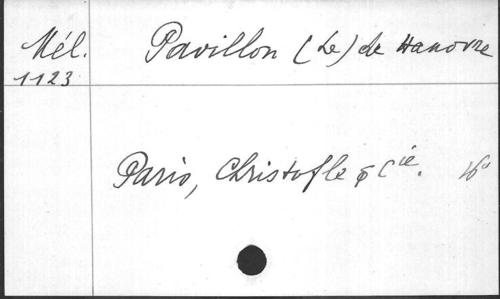 Mél. Pavillon (Le) de Hanovre
1123
Paris, Christofle & Cie. 16°